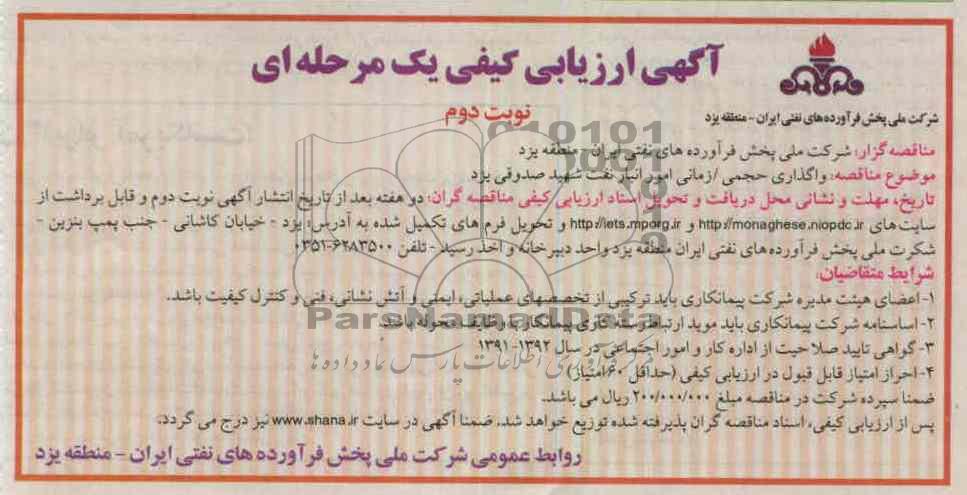 آگهی ارزیابی کیفی یک مرحله ای
شرکت ملی پخش فرآورده های نفتی ایران - منطقه یزد
نوبت دوم
مناقصه گزار: شرکت ملی پخش فرآورده های نفتی ایران - منطقه یزد
موضوع مناقصه: واگذاری حجمی /زمانی امور انبار نفت شهید صدوقی یزد
تاریخ، مهلت و نشانی محل دریافت و تحویل اسناد ارزیابی کیفی مناقصه گران: دو هفته بعد از تاریخ انتشار آگهی نوبت دوم و قابل برداشت از
سایت های http://monaghese.niopdc.ir و http://iets.mporg.ir و تحویل فرم های تکمیل شده به آدرس: یزد - خیابان کاشانی - جنب پمپ بنزین -
شکرت ملی پخش فرآورده های نفتی ایران منطقه یزد واحد دبیرخانه و اخذ رسید - تلفن ۶۲۸۳۵۰۰-۰۳۵۱
شرایط متقاضیان:
۱- اعضای هیئت مدیره شرکت پیمانکاری باید ترکیبی از تخصصهای عملیاتی، ایمنی و آتش نشانی، فنی و کنترل کیفیت باشد.
۲- اساسنامه شرکت پیمانکاری باید موید ارتباط رسته کاری پیمانکار با وظایف محوله باشد.
۳- گواهی تایید صلاحیت از اداره کار و امور اجتماعی در سال ۱۳۹۲- ۱۳۹۱
۴- احراز امتیاز قابل قبول در ارزیابی کیفی (حداقل ۶۰ امتیاز)
ضمنا سپرده شرکت در مناقصه مبلغ ۲۰۰/۰۰۰/۰۰۰ ریال می باشد.
پس از ارزیابی کیفی، اسناد مناقصه گران پذیرفته شده توزیع خواهد شد. ضمنا آگهی در سایت www.shana.ir نیز درج می گردد.
روابط عمومی شرکت ملی پخش فرآورده های نفتی ایران - منطقه یزد
ParsNamadData